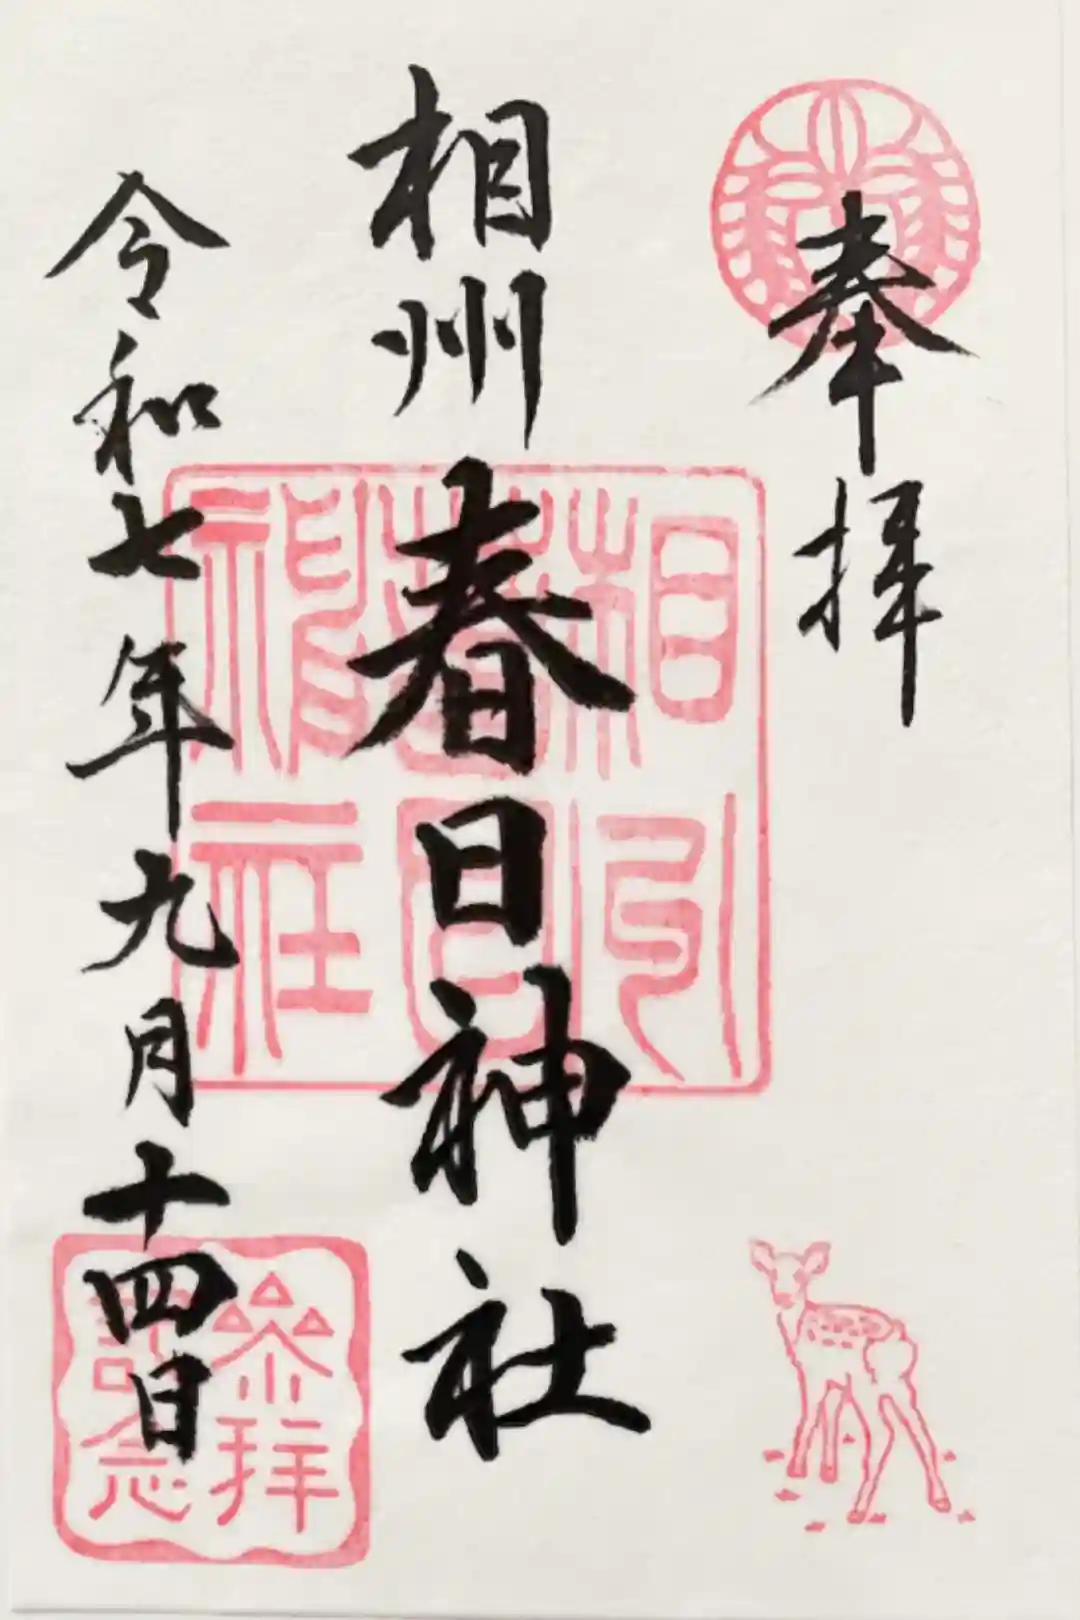 奉拝
相州春日神社
令和七年九月十四日
相州
春日
神社
参拝
記念